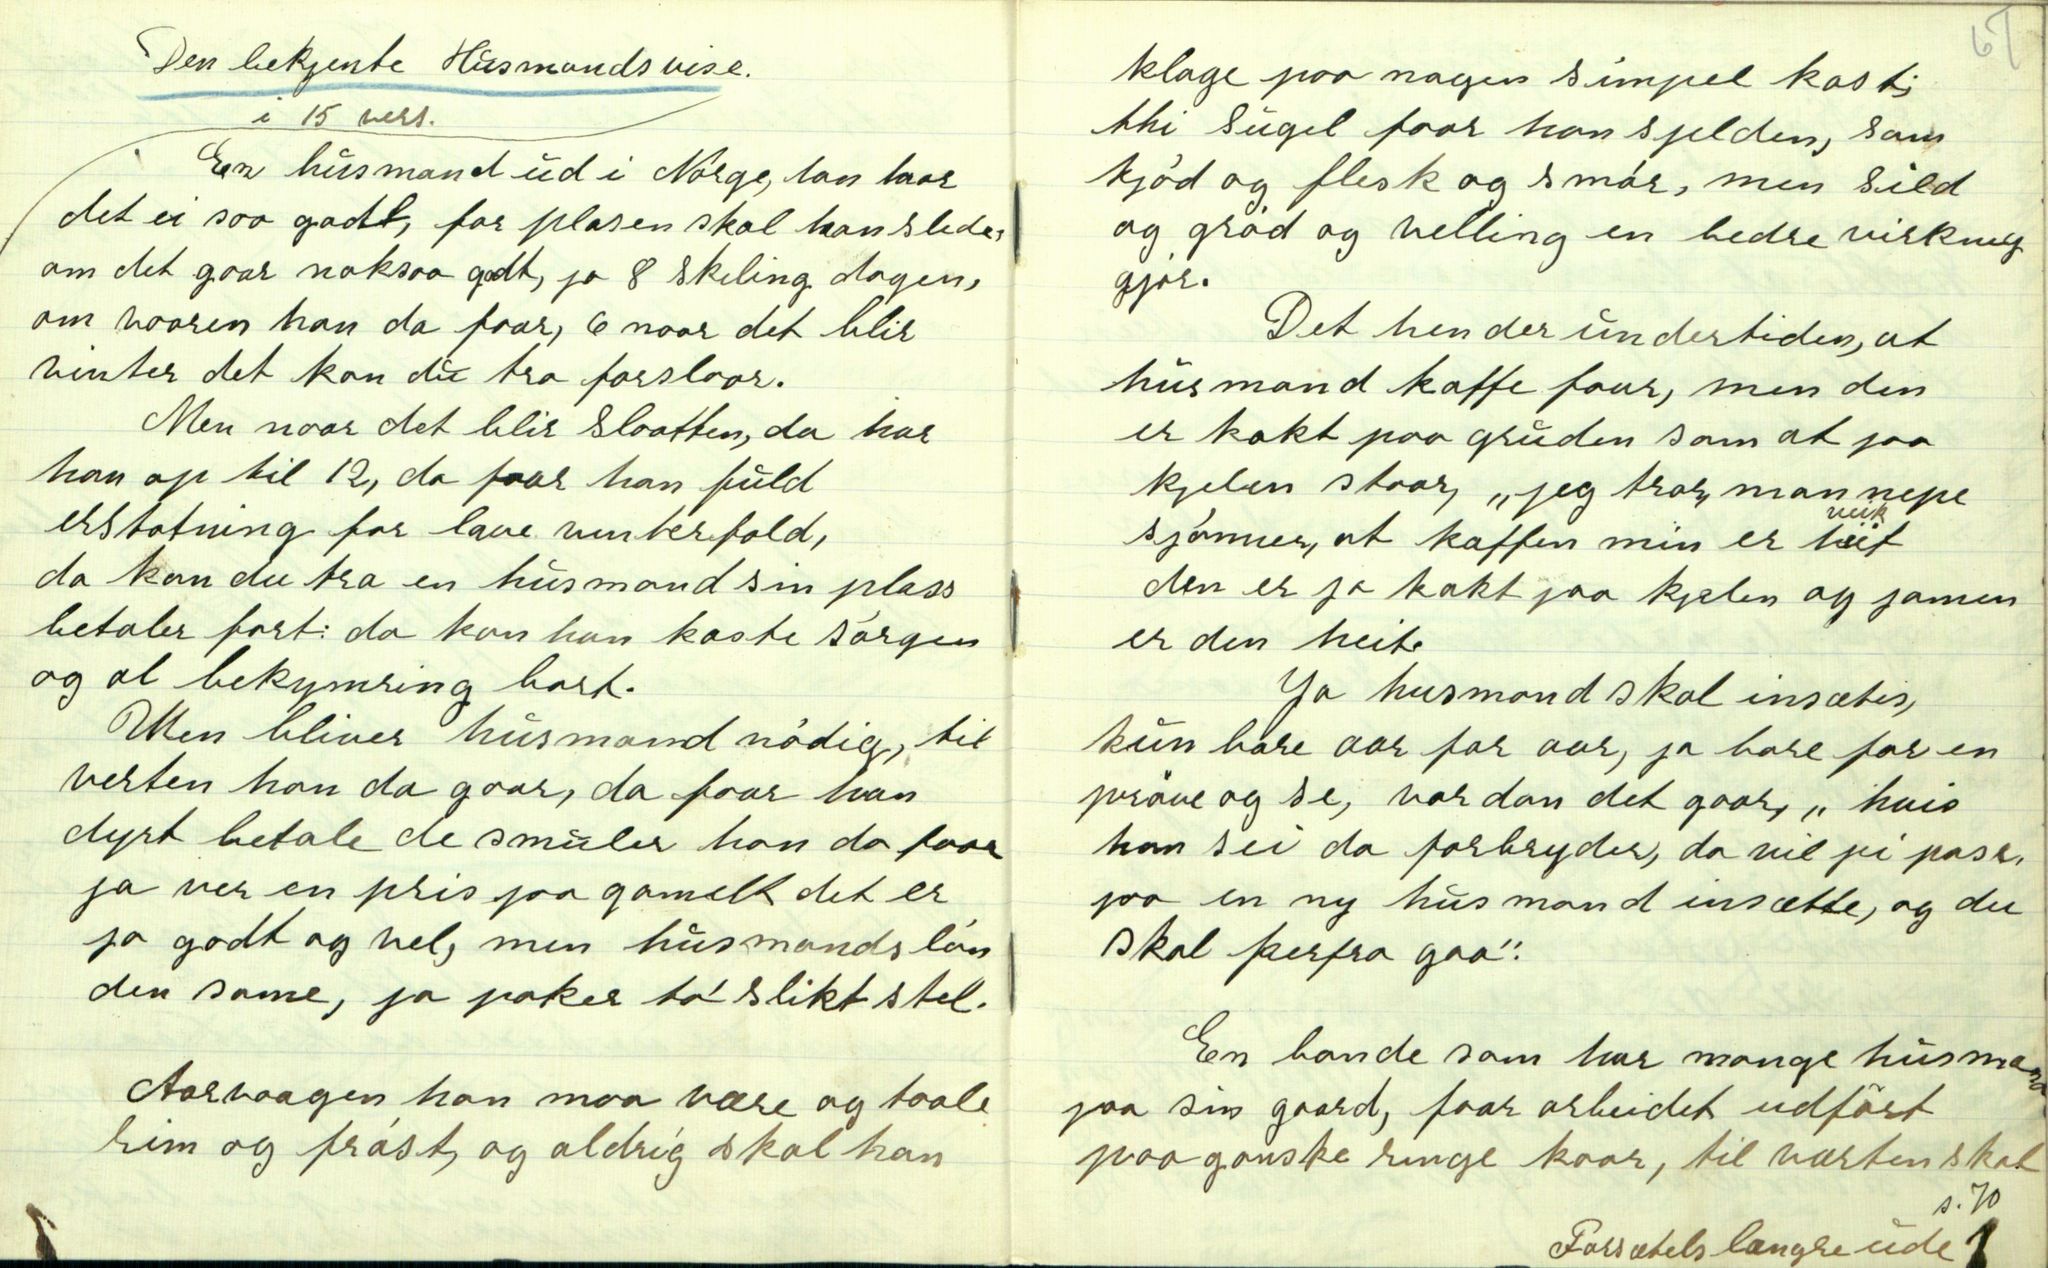 Den bekjente Husmandsvise.
i 15 vers.
En husmand ud i Norge, han haar
det ei saa godt, for plasen skal han slede,
om det gaar noksaa godt, ja 8 skeling dagen,
om vaaren han da faar, 6 naar det blir
vinter det kan du tro forslaar.
Men naar det blir Slaatten, da har
han op til 12, da faar han fuld
erstatning for lave vinterfold,
da kan du tro en husmand sin plass
betaler fort: da kan han kaste sorgen
og al bekymring bort.
Men bliver husmand nödig, til
verten han da gaar, da faar han
dyrt betale de smuler han da faar
ja ver en pris paa gamelt det er
ja godt og vel, men husmands lön
den same, ja poker ta' slikt stel.
Aarvaagen han maa være og taale
rim og fråst, og aldrig skal han
67
klage paa nogen simpel kost;
thi Sugel faar han sjelden, som
kjöd og flesk og smör, men Sild
og gröd og velling en bedre virkning
gjör.
Det hender undertiden, at
husmand kaffe faar, men den
er kokt paa gruden som at paa
kjelen staar, "jeg tror, man nepe
veik
sjönner, at kaffen min er
den er jo kokt paa kjelen og jamen
er den heit.
Ja husmand skal insætes,
kun bare aar for aar, ja bare for en
pröve og se, vordan det gaar, "hvis
han sei da forbryder, da vil pi pass.
paa en ny husmand insætte, og du
skal herfra gaa".
En bonde som har mange husmand
paa sin gaard, faar arbeidet udfört
paa ganske ringe kaar, til værten skal
s. 70
Forsætels længre ude